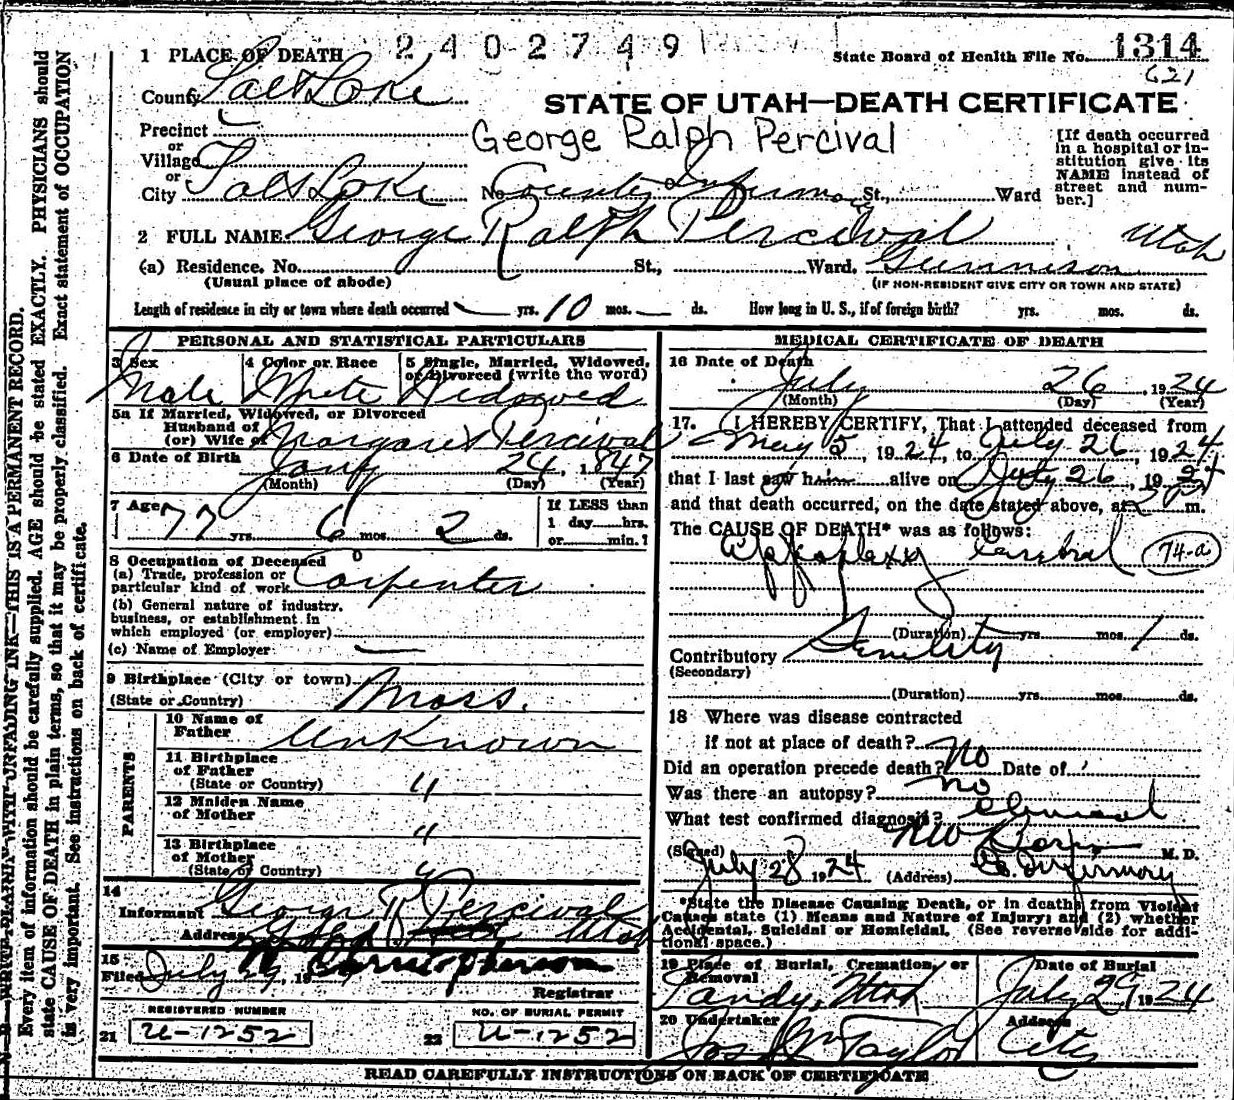 1 PLACE OF DEATH 2402749 State Board of Health File No. 1314
621
County Salt Lake STATE OF UTAH—DEATH CERTIFICATE
Precinct
or
Village
or
City Salt Lake No. County Infirmary St., Ward
George Ralph Percival
[If death occurred in a hospital or in-
stitution give its
NAME instead of
street and num-
ber.]
2 FULL NAME George Ralph Percival
(a) Residence. No. St., Ward. Gunnison Utah
(Usual place of abode) (IF NON-RESIDENT GIVE CITY OR TOWN AND STATE)
Length of residence in city or town where death occurred — yrs. 10 mos. — ds. How long in U. S., if of foreign birth? yrs. mos. ds.
PERSONAL AND STATISTICAL PARTICULARS
3 Sex 4 Color or Race 5 Single, Married, Widowed,
or Divorced (write the word)
Male White Widowed
5a If Married, Widowed, or Divorced
Husband of
(or) Wife of Margaret Percival
6 Date of Birth Jany 24, 1847
(Month) (Day) (Year)
7 Age 77 yrs. 6 mos. 2 ds. If LESS than
1 day hrs.
or min.?
8 Occupation of Deceased
(a) Trade, profession or
particular kind of work Carpenter
(b) General nature of industry,
business, or establishment in
which employed (or employer)
(c) Name of Employer —
9 Birthplace (City or town)
(State or Country) Mass.
PARENTS
10 Name of
Father Unknown
11 Birthplace
of Father
(State or Country) "
12 Maiden Name
of Mother "
13 Birthplace
of Mother
(State or Country) "
14
Informant George R Percival
Address Utah
15
Filed July 29, 19
Registrar
REGISTERED NUMBER NO. OF BURIAL PERMIT
21 U-1252 22 U-1252
MEDICAL CERTIFICATE OF DEATH
16 Date of Death
July 26, 1924
(Month) (Day) (Year)
17. I HEREBY CERTIFY, That I attended deceased from
May 5, 1924, to July 26, 1924
that I last saw him alive on July 26, 1924
and that death occurred, on the date stated above, at 2 P m.
The CAUSE OF DEATH* was as follows:
Appoplexy Cerebral 74-a
(Duration) yrs. mos. 1 ds.
Contributory Senility
(Secondary)
(Duration) yrs. mos. ds.
18 Where was disease contracted
if not at place of death?
Did an operation precede death? No Date of
Was there an autopsy? no
What test confirmed diagnosis? Clinical
(Signed) M. D.
July 28 1924 (Address) Co. Infirmary
*State the Disease Causing Death, or in deaths from Violent
Causes state (1) Means and Nature of Injury; and (2) whether
Accidental, Suicidal or Homicidal. (See reverse side for addi-
tional space.)
19 Place of Burial, Cremation, or
Removal Date of Burial
Sandy, Utah July 29, 1924
20 Undertaker Address
Jos Wm Taylor City
READ CAREFULLY INSTRUCTIONS ON BACK OF CERTIFICATE
N. B.—WRITE PLAINLY WITH UNFADING INK—THIS IS A PERMANENT RECORD.
Every item of information should be carefully supplied. AGE should be stated EXACTLY. PHYSICIANS should
state CAUSE OF DEATH in plain terms, so that it may be properly classified. Exact statement of OCCUPATION
is very important. See instructions on back of certificate.